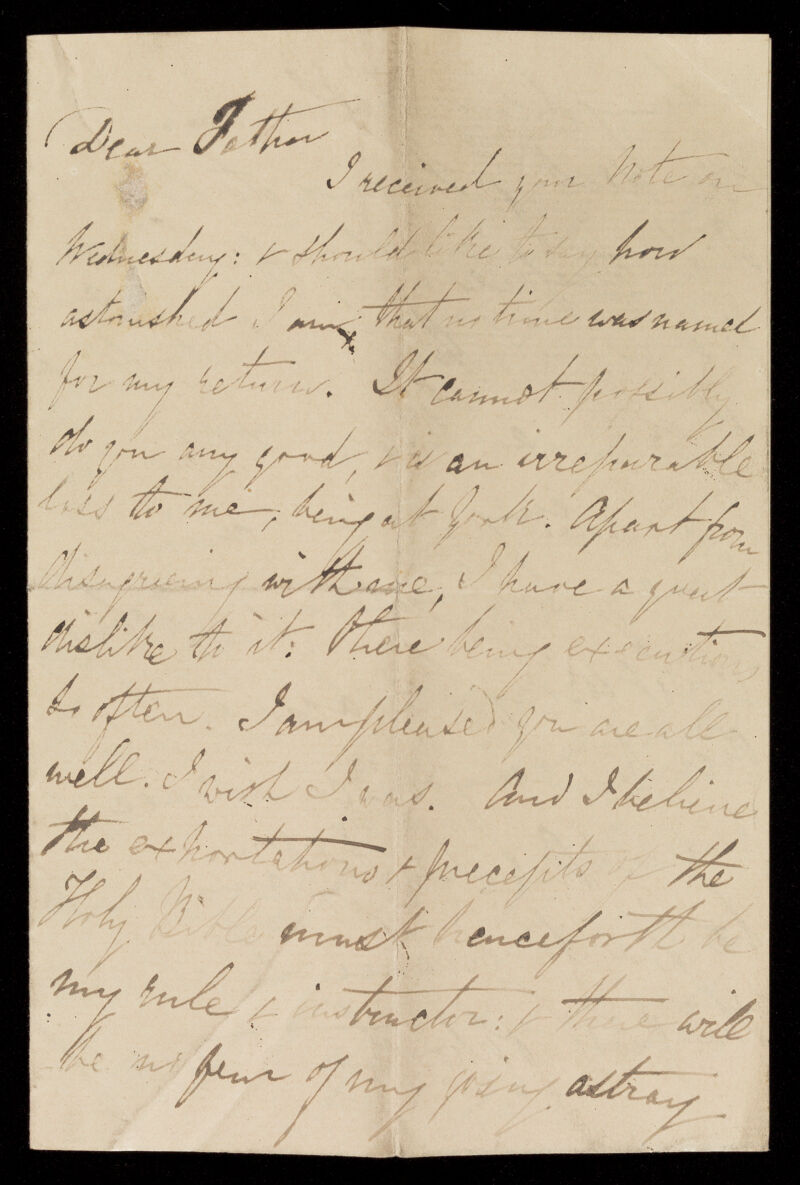 Dear Father
I received your Note on
Wednesday: & should like to say how
astonished I am, that no time was named
for my return. It cannot possibly
do you any good, & is an irreparable
loss to me, being at York. Apart from
disagreeing with me, I have a great
dislike to it: there being executions
so often. I am pleased you are all
well. I wish I was. And I believe
the exhortations & precepts of the
Holy Bible must henceforth be
my rule & instructor: & there will
be no fear of my going astray